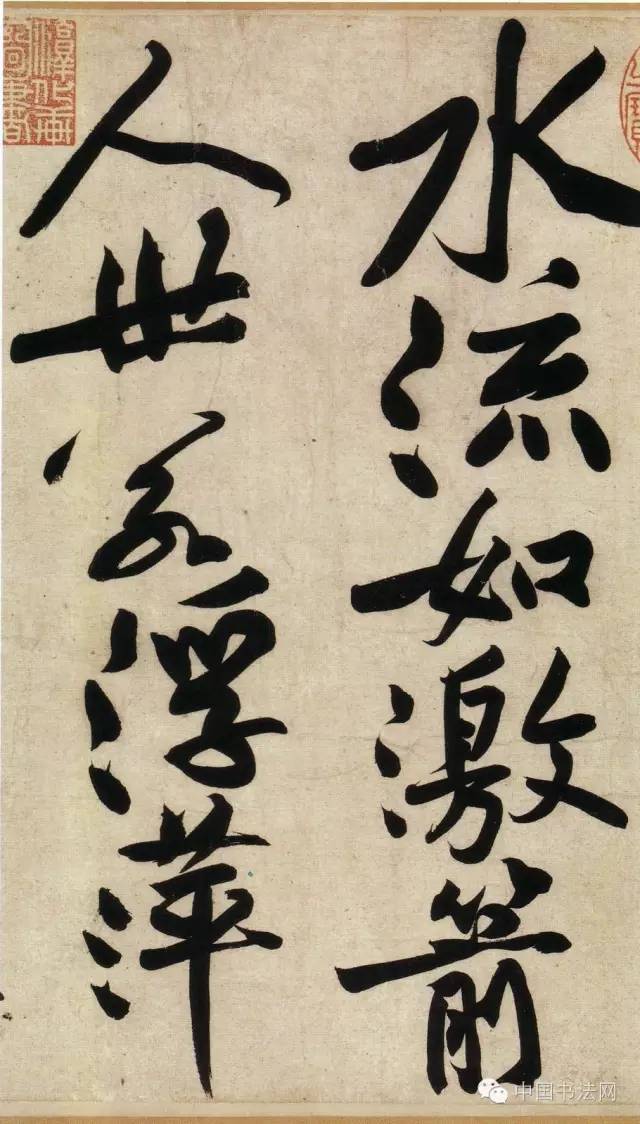 水流如激箭
人世若浮萍
中国书法网